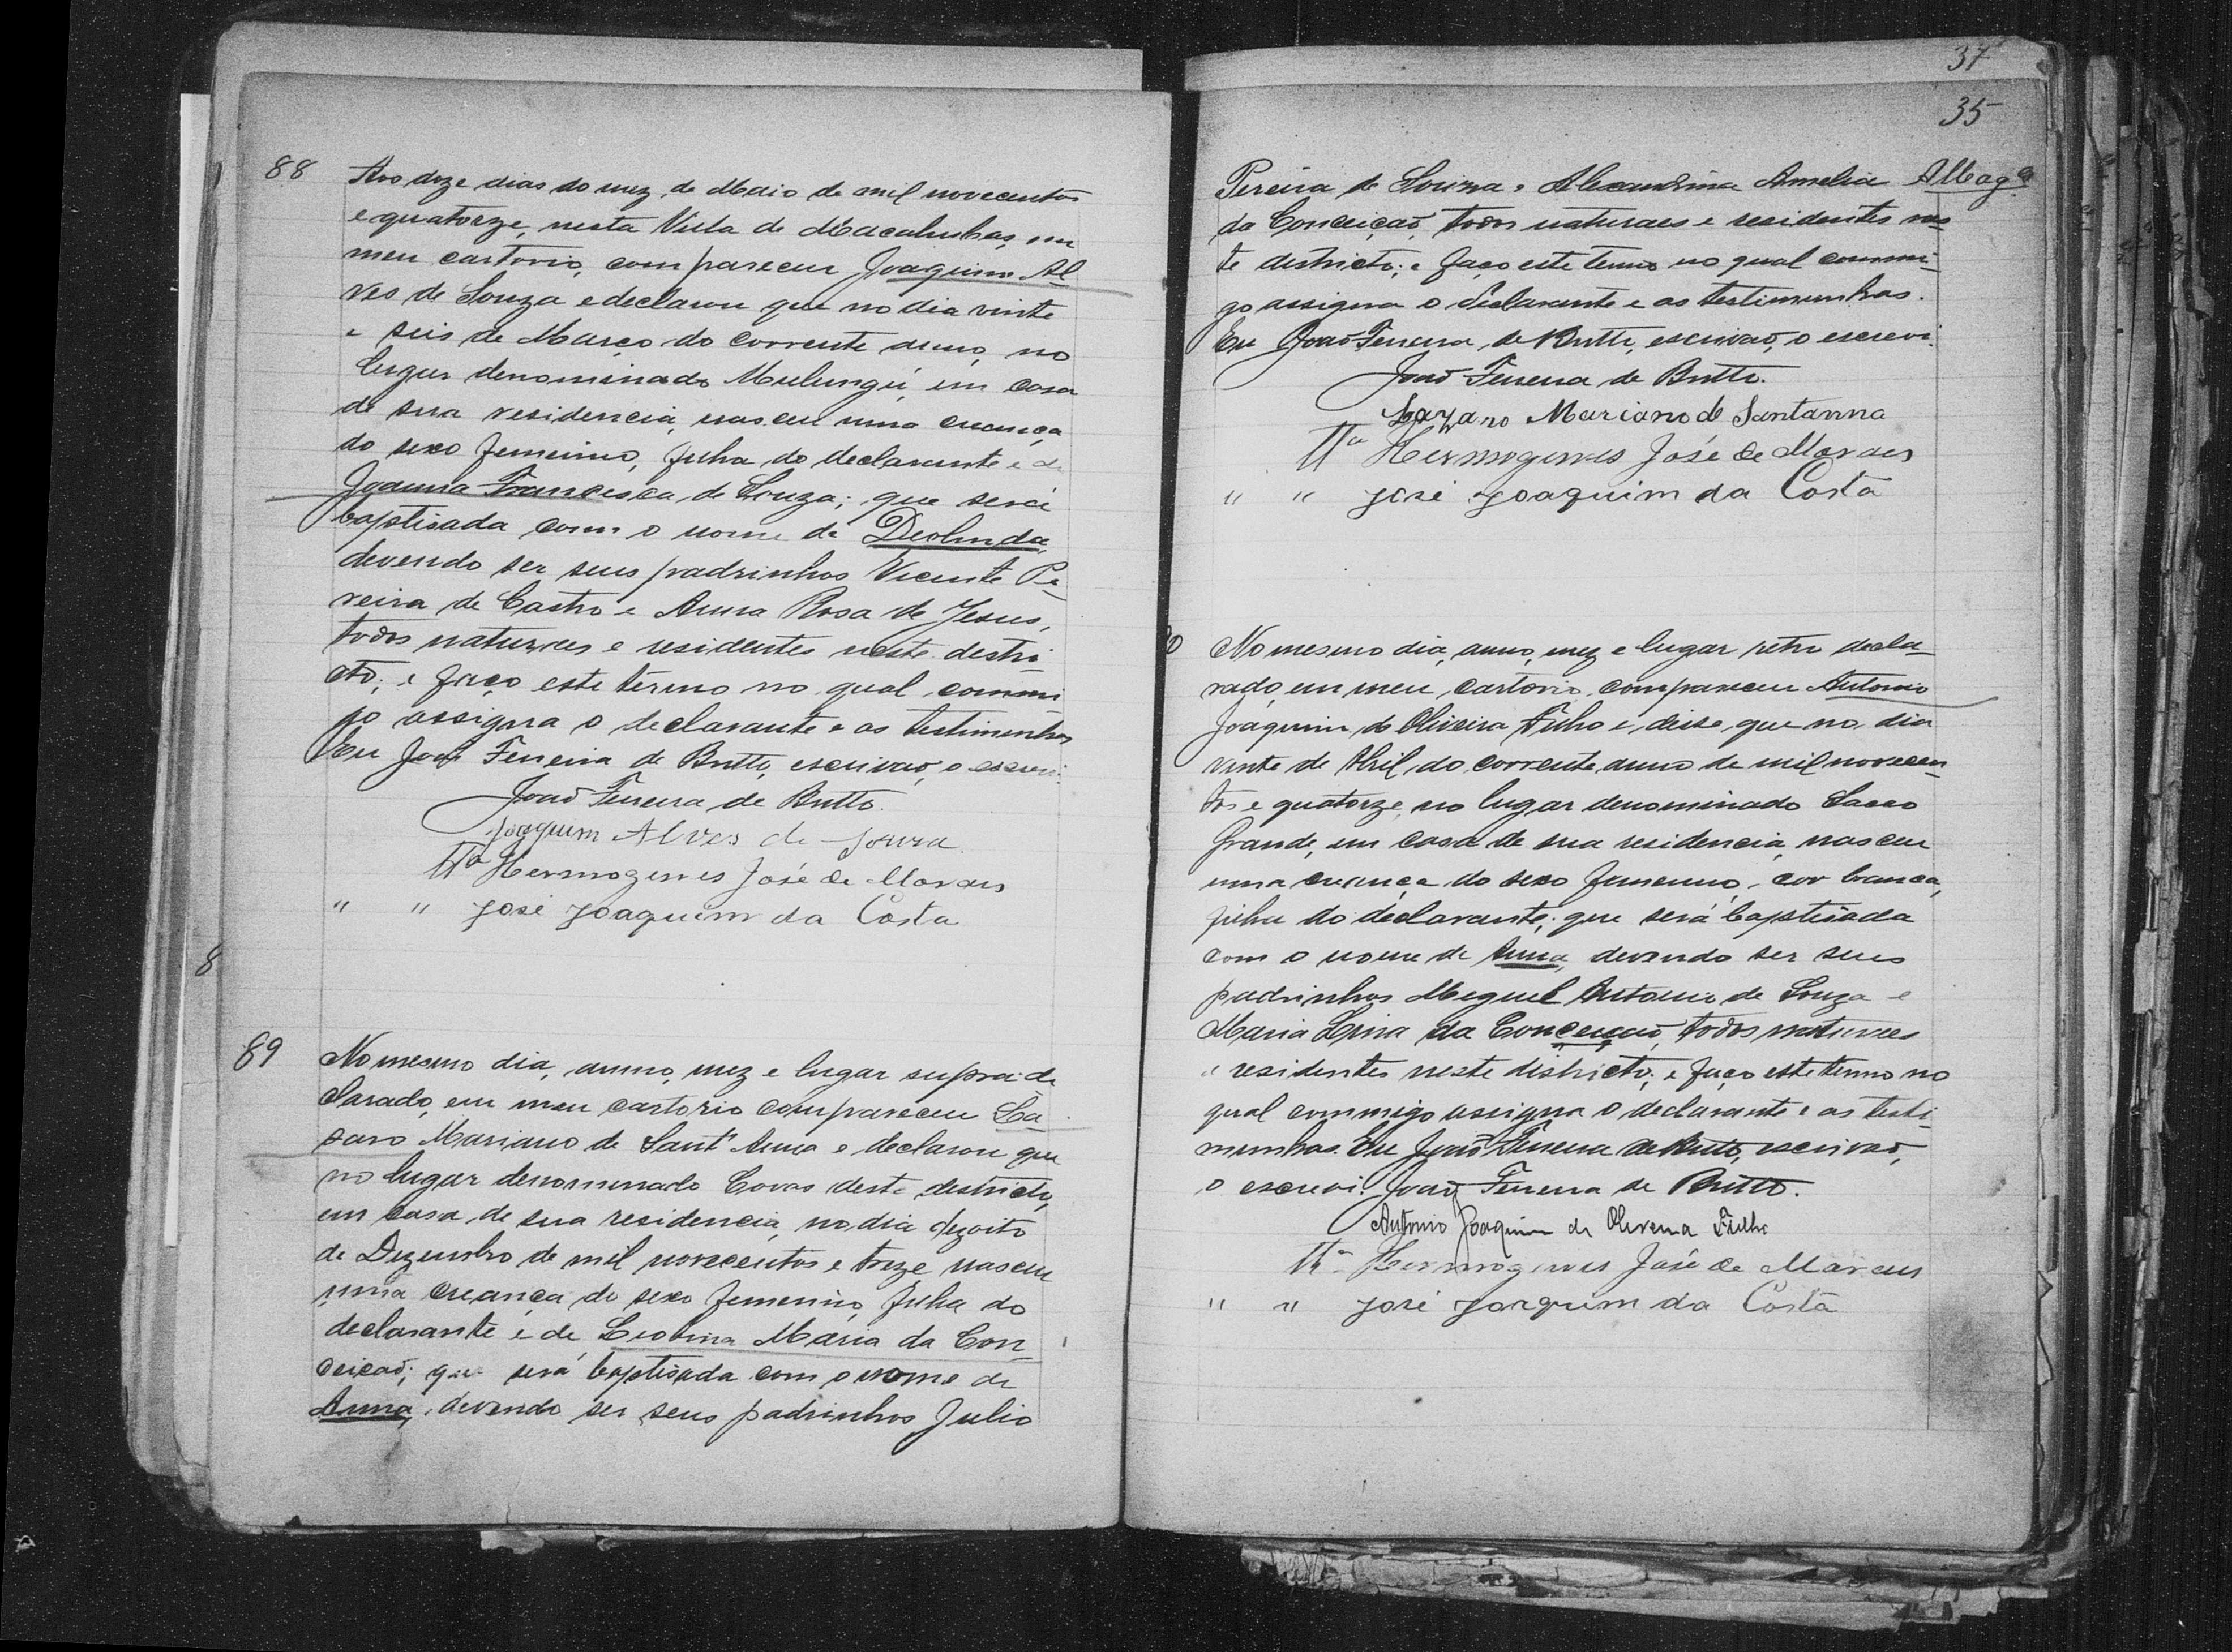 88
Aos doze dias do mez de Maio de mil novecentos
e quatorze, nesta Villa de Macahubas, em
meu cartorio, compareceu Joaquim Al-
ves de Souza e declarou que no dia vinte
e seis de Março do corrente anno, no
lugar denominado Mulungú, em casa
de sua residencia, nasceu uma creança
do sexo femenino, filha do declarante e de
Joanna Francisca de Souza; que será
baptisada com o nome de Deolinda,
devendo ser seus padrinhos Vicente Pe-
reira de Castro e Anna Rosa de Jesus,
todos naturaes e residentes neste destri-
cto; e faço este termo no qual commi
go assigna o declarante e as testimunhas
Eu João Ferreira de Britto, escrivaõ, o escrevi.
Joaõ Ferreira de Britto.
Joaquim Alves de Souza
Tta Hermogenes José de Moraes
" " José Joaquim da Costa
8
89
No mesmo dia, anno, mez e lugar supra de
clarado, em meu cartorio compareceu La-
saro Mariano de Sant'Anna e declarou que
no lugar denominado Covas deste destricto,
em casa de sua residencia, no dia dezoito
de Dezembro de mil novecentos e treze nasceu
uma creança do sexo femenino, filha do
declarante e de Leolina Maria da Con-
ceicaõ; que será baptisada com o nome de
Anna, devendo ser seus padrinhos Julio
37
35
Pereira de Souza e Alexandrina Amelia
da Conceiçaõ, todos naturaes e residentes nes-
te districto; e faço este termo no qual commi-
go assigna o declarante e as testimunhas.
Eu Joaõ Ferreira de Britto, escrivaõ, o escrevi.
Joaõ Ferreira de Britto.
Lazaro Mariano de Santanna
Tta Hermogenes José de Moraes
" " José Joaquim da Costa
No mesmo dia, anno, mez e lugar retro decla-
rado, em meu cartorio compareceu Antonio
Joaquim de Oliveira Filho e disse que no dia
vinte de Abril do corrente anno de mil novecen-
tos e quatorze, no lugar denominado Sacco
Grande, em casa de sua residencia, nasceu
uma creança do sexo femenino, cor branca,
filha do declarante; que será baptisada
com o nome de Anna, devendo ser seus
padrinhos Meguel Antonio de Souza e
Maria da Conceicaõ, todos naturaes
e residentes neste districto; e faço este termo no
qual commigo assigna o declarante e as testi-
munhas. Eu Joaõ Ferreira de Britto, escrivaõ,
o escrevi. Joaõ Ferreira de Britto.
Antonio Joaquim de Oliveira Filho
Tta Hermogenes José de Moraes
" " José Joaquim da Costa